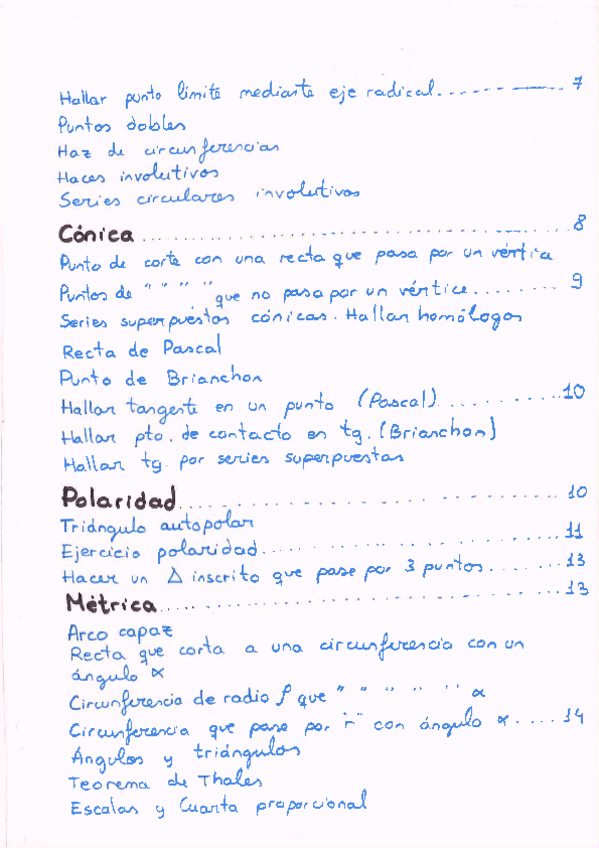 Hallar punto límite mediante eje radical. . . . . . . . . . . 7
Puntos dobles
Haz de circunferencias
Haces involutivos
Series circulares involutivas
Cónica . . . . . . . . . . . . . . . . . . . . . . . . . . . . . . . . 8
Punto de corte con una recta que pasa por un vértice
Puntos de " " " " que no pasa por un vértice. . . . . . . . 9
Series superpuestas cónicas. Hallar homólogos
Recta de Pascal
Punto de Brianchon
Hallar tangente en un punto (Pascal) . . . . . . . . . . . 10
Hallar pto. de contacto en tg. (Brianchon)
Hallar tg. por series superpuestas
Polaridad . . . . . . . . . . . . . . . . . . . . . . . . . . . . 10
Triángulo autopolar
Ejercicio polaridad. . . . . . . . . . . . . . . . . . . . . . 11
Hacer un Δ inscrito que pase por 3 puntos. . . . . . . . 13
Métrica. . . . . . . . . . . . . . . . . . . . . . . . . . . . . 13
Arco capaz
Recta que corta a una circunferencia con un
ángulo α
Circunferencia de radio ρ que " " " " α
Circunferencia que pase por "r" con ángulo α. . . . 14
Ángulos y triángulos
Teorema de Thales
Escalas y Cuarta proporcional